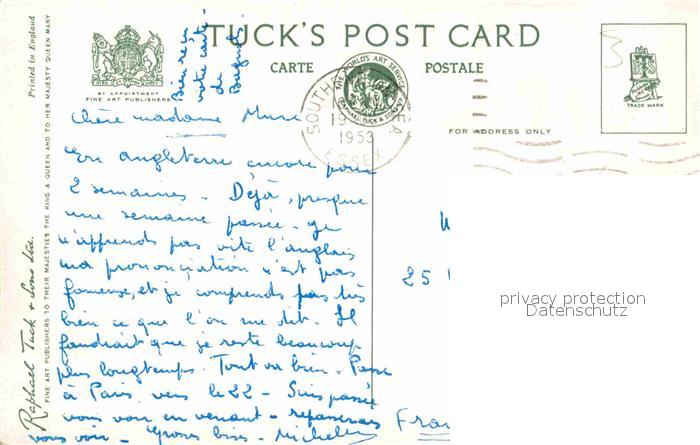 TUCK'S POST CARD
CARTE POSTALE
BY APPOINTMENT
FINE ART PUBLISHERS
THE WORLD'S ART SERVICE
RAPHAEL TUCK & SONS LTD
TRADE MARK
FOR ADDRESS ONLY
Printed in England
Raphael Tuck & Sons Ltd.
FINE ART PUBLISHERS TO THEIR MAJESTIES THE KING & QUEEN AND TO HER MAJESTY QUEEN MARY
SOUTH
1953
ESSEX
Bien reçu
votre carte
de
Chère madame
En angleterre encore pour
2 semaines - Déjà, presque
une semaine passée - Je
n'apprends pas vite l'anglais
ma prononciation n'est pas
fameuse, et je comprends pas très
bien ce que l'on me dit - Il
faudrait que je reste beaucoup
plus longtemps. Tout va bien - Passe
à Paris vers le 22 - Suis passée
vous voir en venant - repasserai
vous voir - Grosses bises -
25
Fran
privacy protection
Datenschutz